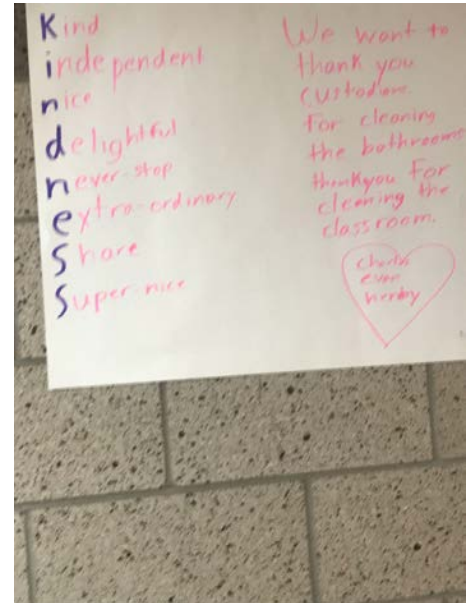 Kind
independent
nice
delightful
never-stop
extra-ordinary
Share
Super-nice
We want to
thank you
custodians
for cleaning
the bathrooms
thankyou For
cleaning the
classroom.
ever